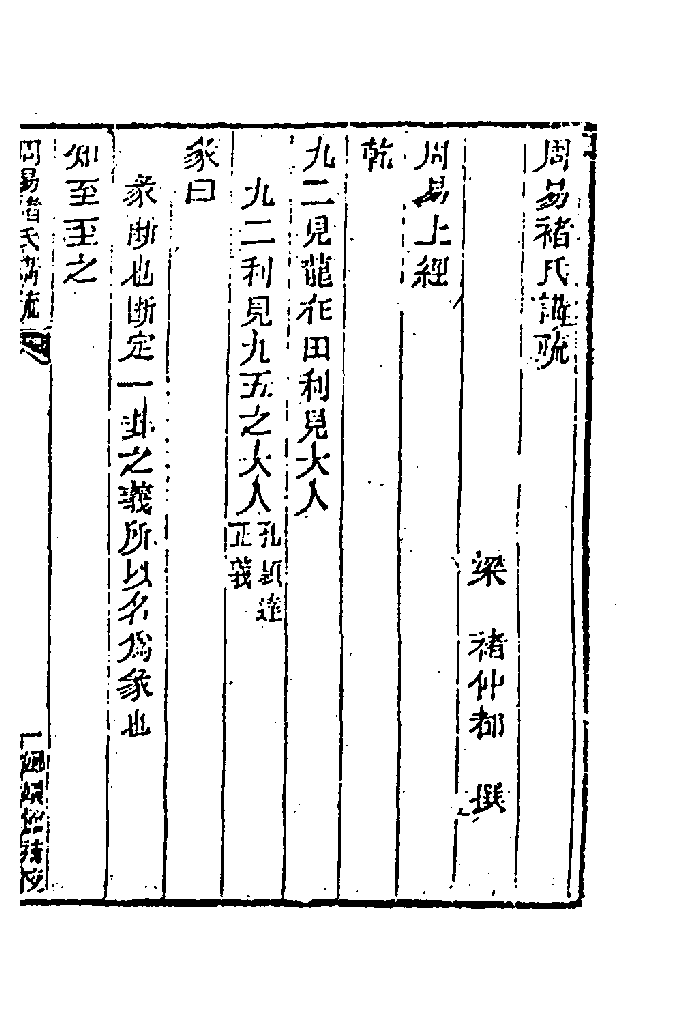 周易褚氏講疏
梁 褚仲都 撰
周易上經
乾
九二見龍在田利見大人
九二利見九五之大人孔穎達正義
彖曰
彖斷也斷定一卦之義所以名為彖也
知至至之
周易褚氏講疏
一